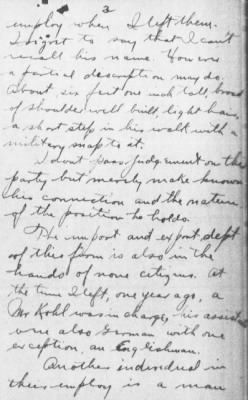 3
employ when I left them.
I regret to say that I can't
recall his name. However
a partial description may do.
About, six feet one inch tall, broad
of shoulder well built, light hair,
a short step in his walk with a
military snap to it.
I dont pass judgement on the
party but merely make known
his connection and the nature
of the position he holds.
The import and export dept
of this firm is also in the
hands of none citizens. At
the time I left, one year ago, a
Mr Kohl was in charge, his assist
were also German with one
exception, an Englishman.
Another individual in
their employ is a man